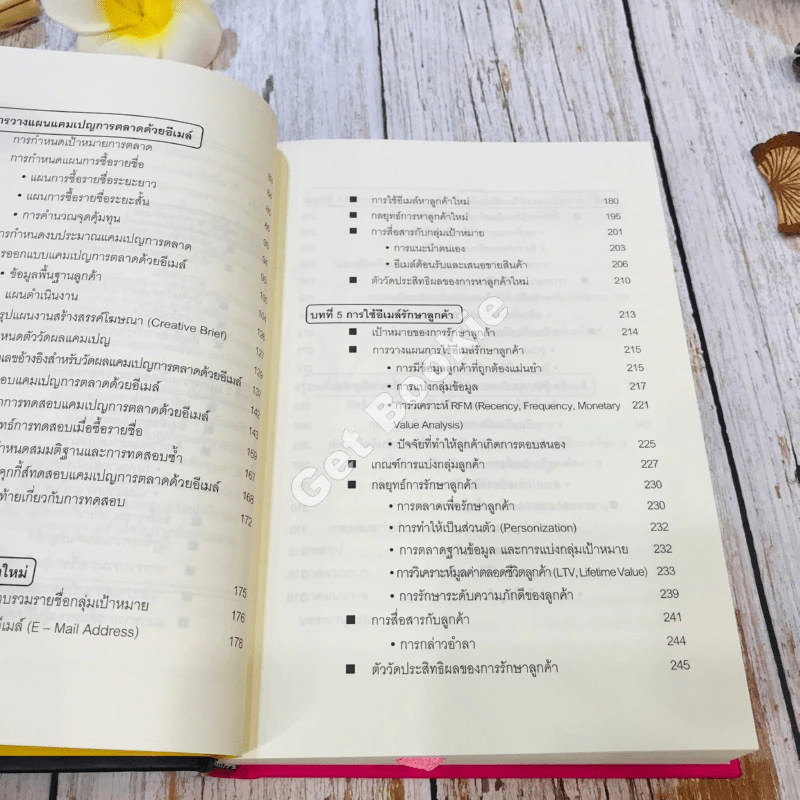 ารวางแผนแคมเปญการตลาดด้วยอีเมล์
การกำหนดเป้าหมายการตลาด
การกำหนดแผนการซื้อรายชื่อ
• แผนการซื้อรายชื่อระยะยาว
• แผนการซื้อรายชื่อระยะสั้น
• การคำนวณจุดคุ้มทุน
ารกำหนดงบประมาณแคมเปญการตลาด
รออกแบบแคมเปญการตลาดด้วยอีเมล์
• ข้อมูลพื้นฐานลูกค้า
แผนดำเนินงาน 100
รุปแผนงานสร้างสรรค์โฆษณา (Creative Brief) 104
หนดตัววัดผลแคมเปญ 126
เลขอ้างอิงสำหรับวัดผลแคมเปญการตลาดด้วยอีเมล์ 127
สอบแคมเปญการตลาดด้วยอีเมล์ 129
าการทดสอบแคมเปญการตลาดด้วยอีเมล์ 137
ทธ์การทดสอบเมื่อซื้อรายชื่อ 142
ำหนดสมมติฐานและการทดสอบซ้ำ 143
คุกกี้ส์ทดสอบแคมเปญการตลาดด้วยอีเมล์ 159
ท้ายเกี่ยวกับการทดสอบ 167
168
172
าใหม่ 175
วบรวมรายชื่อกลุ่มเป้าหมาย 176
อีเมล์ (E – Mail Address) 178
■ การใช้อีเมล์หาลูกค้าใหม่ 180
■ กลยุทธ์การหาลูกค้าใหม่ 195
■ การสื่อสารกับกลุ่มเป้าหมาย 201
• การแนะนำตนเอง 203
• อีเมล์ต้อนรับและเสนอขายสินค้า 206
■ ตัววัดประสิทธิผลของการหาลูกค้าใหม่ 210
บทที่ 5 การใช้อีเมล์รักษาลูกค้า 213
■ เป้าหมายของการรักษาลูกค้า 214
■ การวางแผนการใช้อีเมล์รักษาลูกค้า 215
• การมีข้อมูลลูกค้าที่ถูกต้องแม่นยำ 215
• การแบ่งกลุ่มข้อมูล 217
• การวิเคราะห์ RFM (Recency, Frequency, Monetary 221
Value Analysis)
• ปัจจัยที่ทำให้ลูกค้าเกิดการตอบสนอง 225
■ เกณฑ์การแบ่งกลุ่มลูกค้า 227
■ กลยุทธ์การรักษาลูกค้า 230
• การตลาดเพื่อรักษาลูกค้า 230
• การทำให้เป็นส่วนตัว (Personization) 232
• การตลาดฐานข้อมูล และการแบ่งกลุ่มเป้าหมาย 232
• การวิเคราะห์มูลค่าตลอดชีวิตลูกค้า (LTV, Lifetime Value) 233
• การรักษาระดับความภักดีของลูกค้า 239
■ การสื่อสารกับลูกค้า 241
• การกล่าวอำลา 244
■ ตัววัดประสิทธิผลของการรักษาลูกค้า 245
Get Bookie